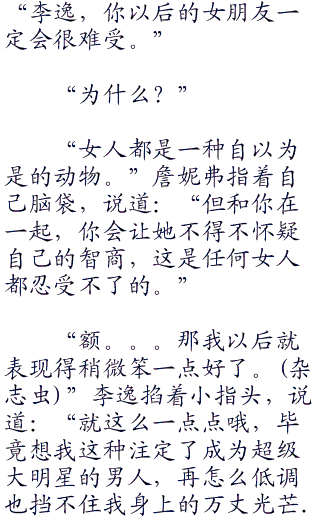 “李逸，你以后的女朋友一
定会很难受。”
“为什么？”
“女人都是一种自以为
是的动物。”詹妮弗指着自
己脑袋，说道：“但和你在
一起，你会让她不得不怀疑
自己的智商，这是任何女人
都忍受不了的。”
“额。。。那我以后就
表现得稍微笨一点好了。(杂
志虫)”李逸掐着小指头，说
道：“就这么一点点哦，毕
竟想我这种注定了成为超级
大明星的男人，再怎么低调
也挡不住我身上的万丈光芒.